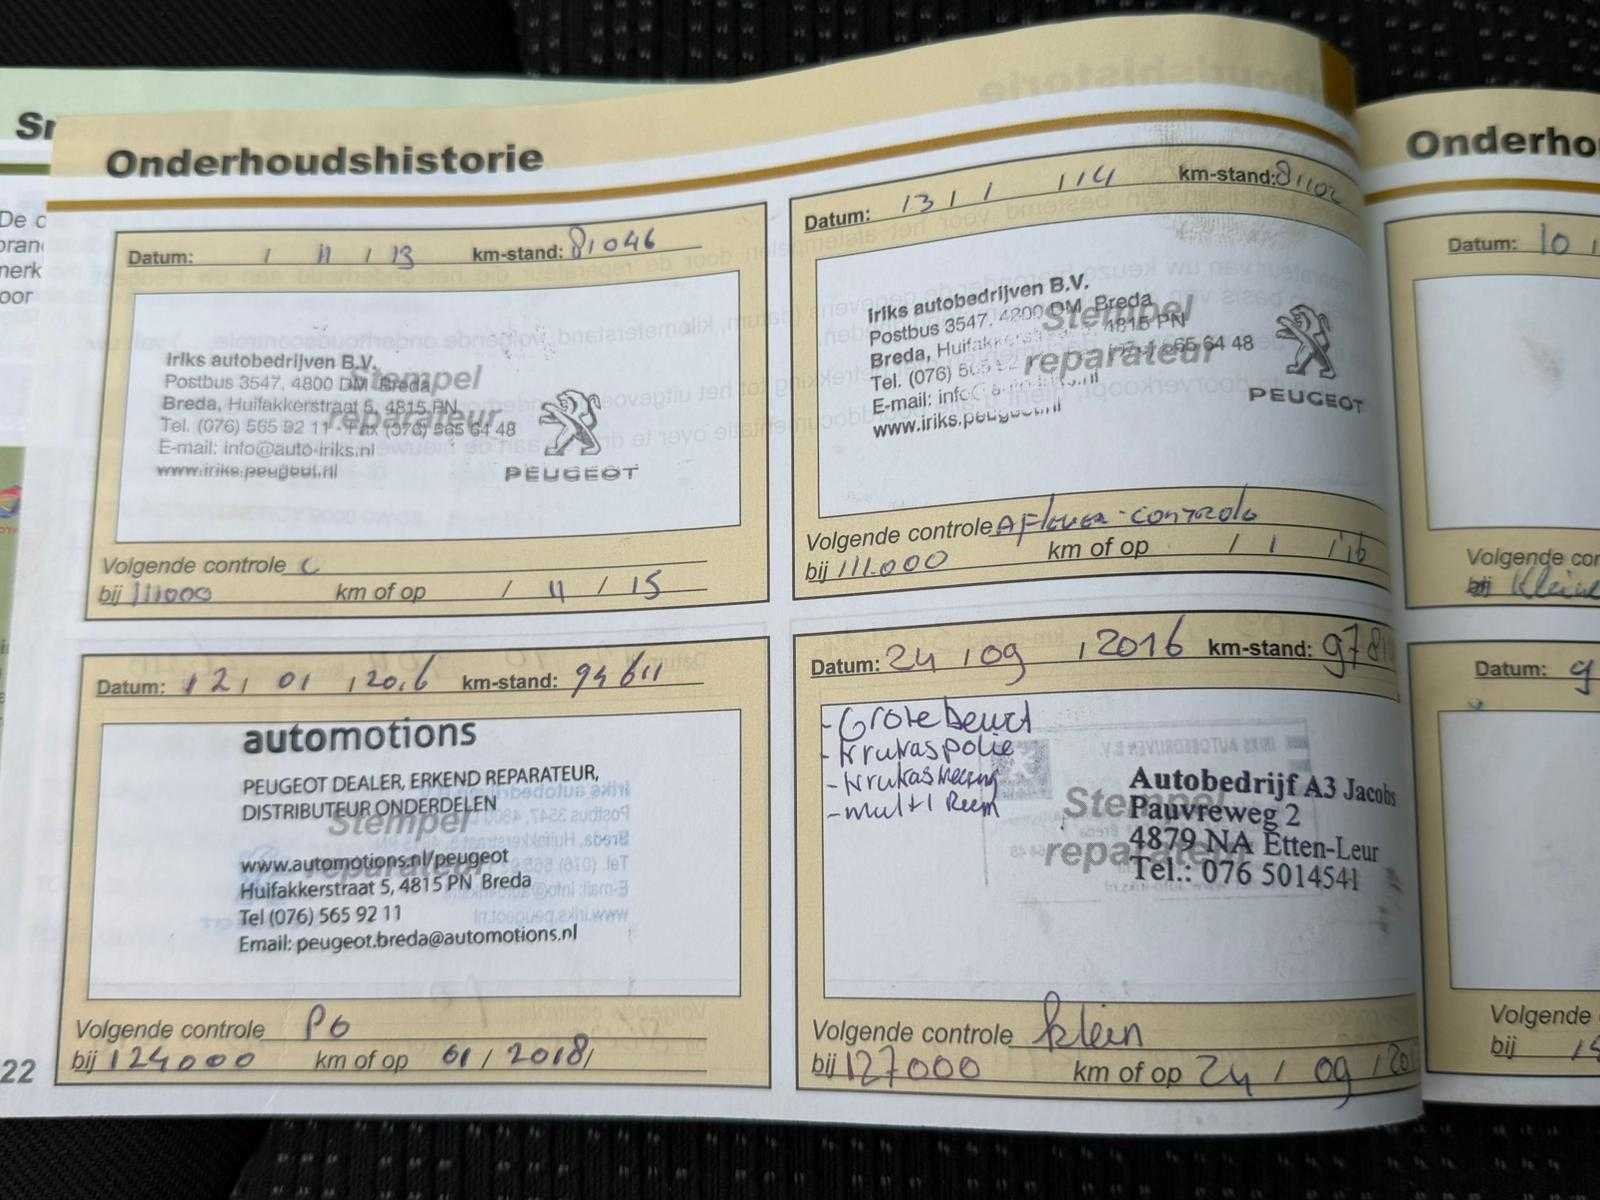 Onderhoudshistorie
Datum: / 11 / 13 km-stand: 81046
Stempel
reparateur
Iriks autobedrijven B.V.
Postbus 3547, 4800 DM Breda
Breda, Huifakkerstraat 5, 4815 PN
Tel. (076) 565 92 11 Fax (076) 565 64 48
E-mail: info@auto-iriks.nl
www.iriks.peugeot.nl
PEUGEOT
Volgende controle C
bij 111000 km of op / 11 / 15
Datum: 13 / 1 / 14 km-stand: 81102
Stempel
reparateur
Iriks autobedrijven B.V.
Postbus 3547, 4800 DM Breda
Breda, 4815 PN
Tel. (076) 565 64 48
E-mail:
www.iriks.peugeot.nl
PEUGEOT
Volgende controle Aflever-controle
bij 111.000 km of op / 1 / 16
Datum: 12 / 01 / 2016 km-stand: 94611
Stempel
reparateur
automotions
PEUGEOT DEALER, ERKEND REPARATEUR,
DISTRIBUTEUR ONDERDELEN
www.automotions.nl/peugeot
Huifakkerstraat 5, 4815 PN Breda
Tel (076) 565 92 11
Email: peugeot.breda@automotions.nl
Volgende controle
bij 124000 km of op 01 / 2018 /
Datum: 24 / 09 / 2016 km-stand:
- Grote beurt
- Krukaspolie
- Krukaskeering
- Multi Riem
Stempel
reparateur
Autobedrijf A3 Jacobs
Pauvreweg 2
4879 NA Etten-Leur
Tel.: 076 5014541
Volgende controle klein
bij 127000 km of op 24 / 09 /
22
Datum: 10
bij Kleine
Datum: 9
Volgende
bij